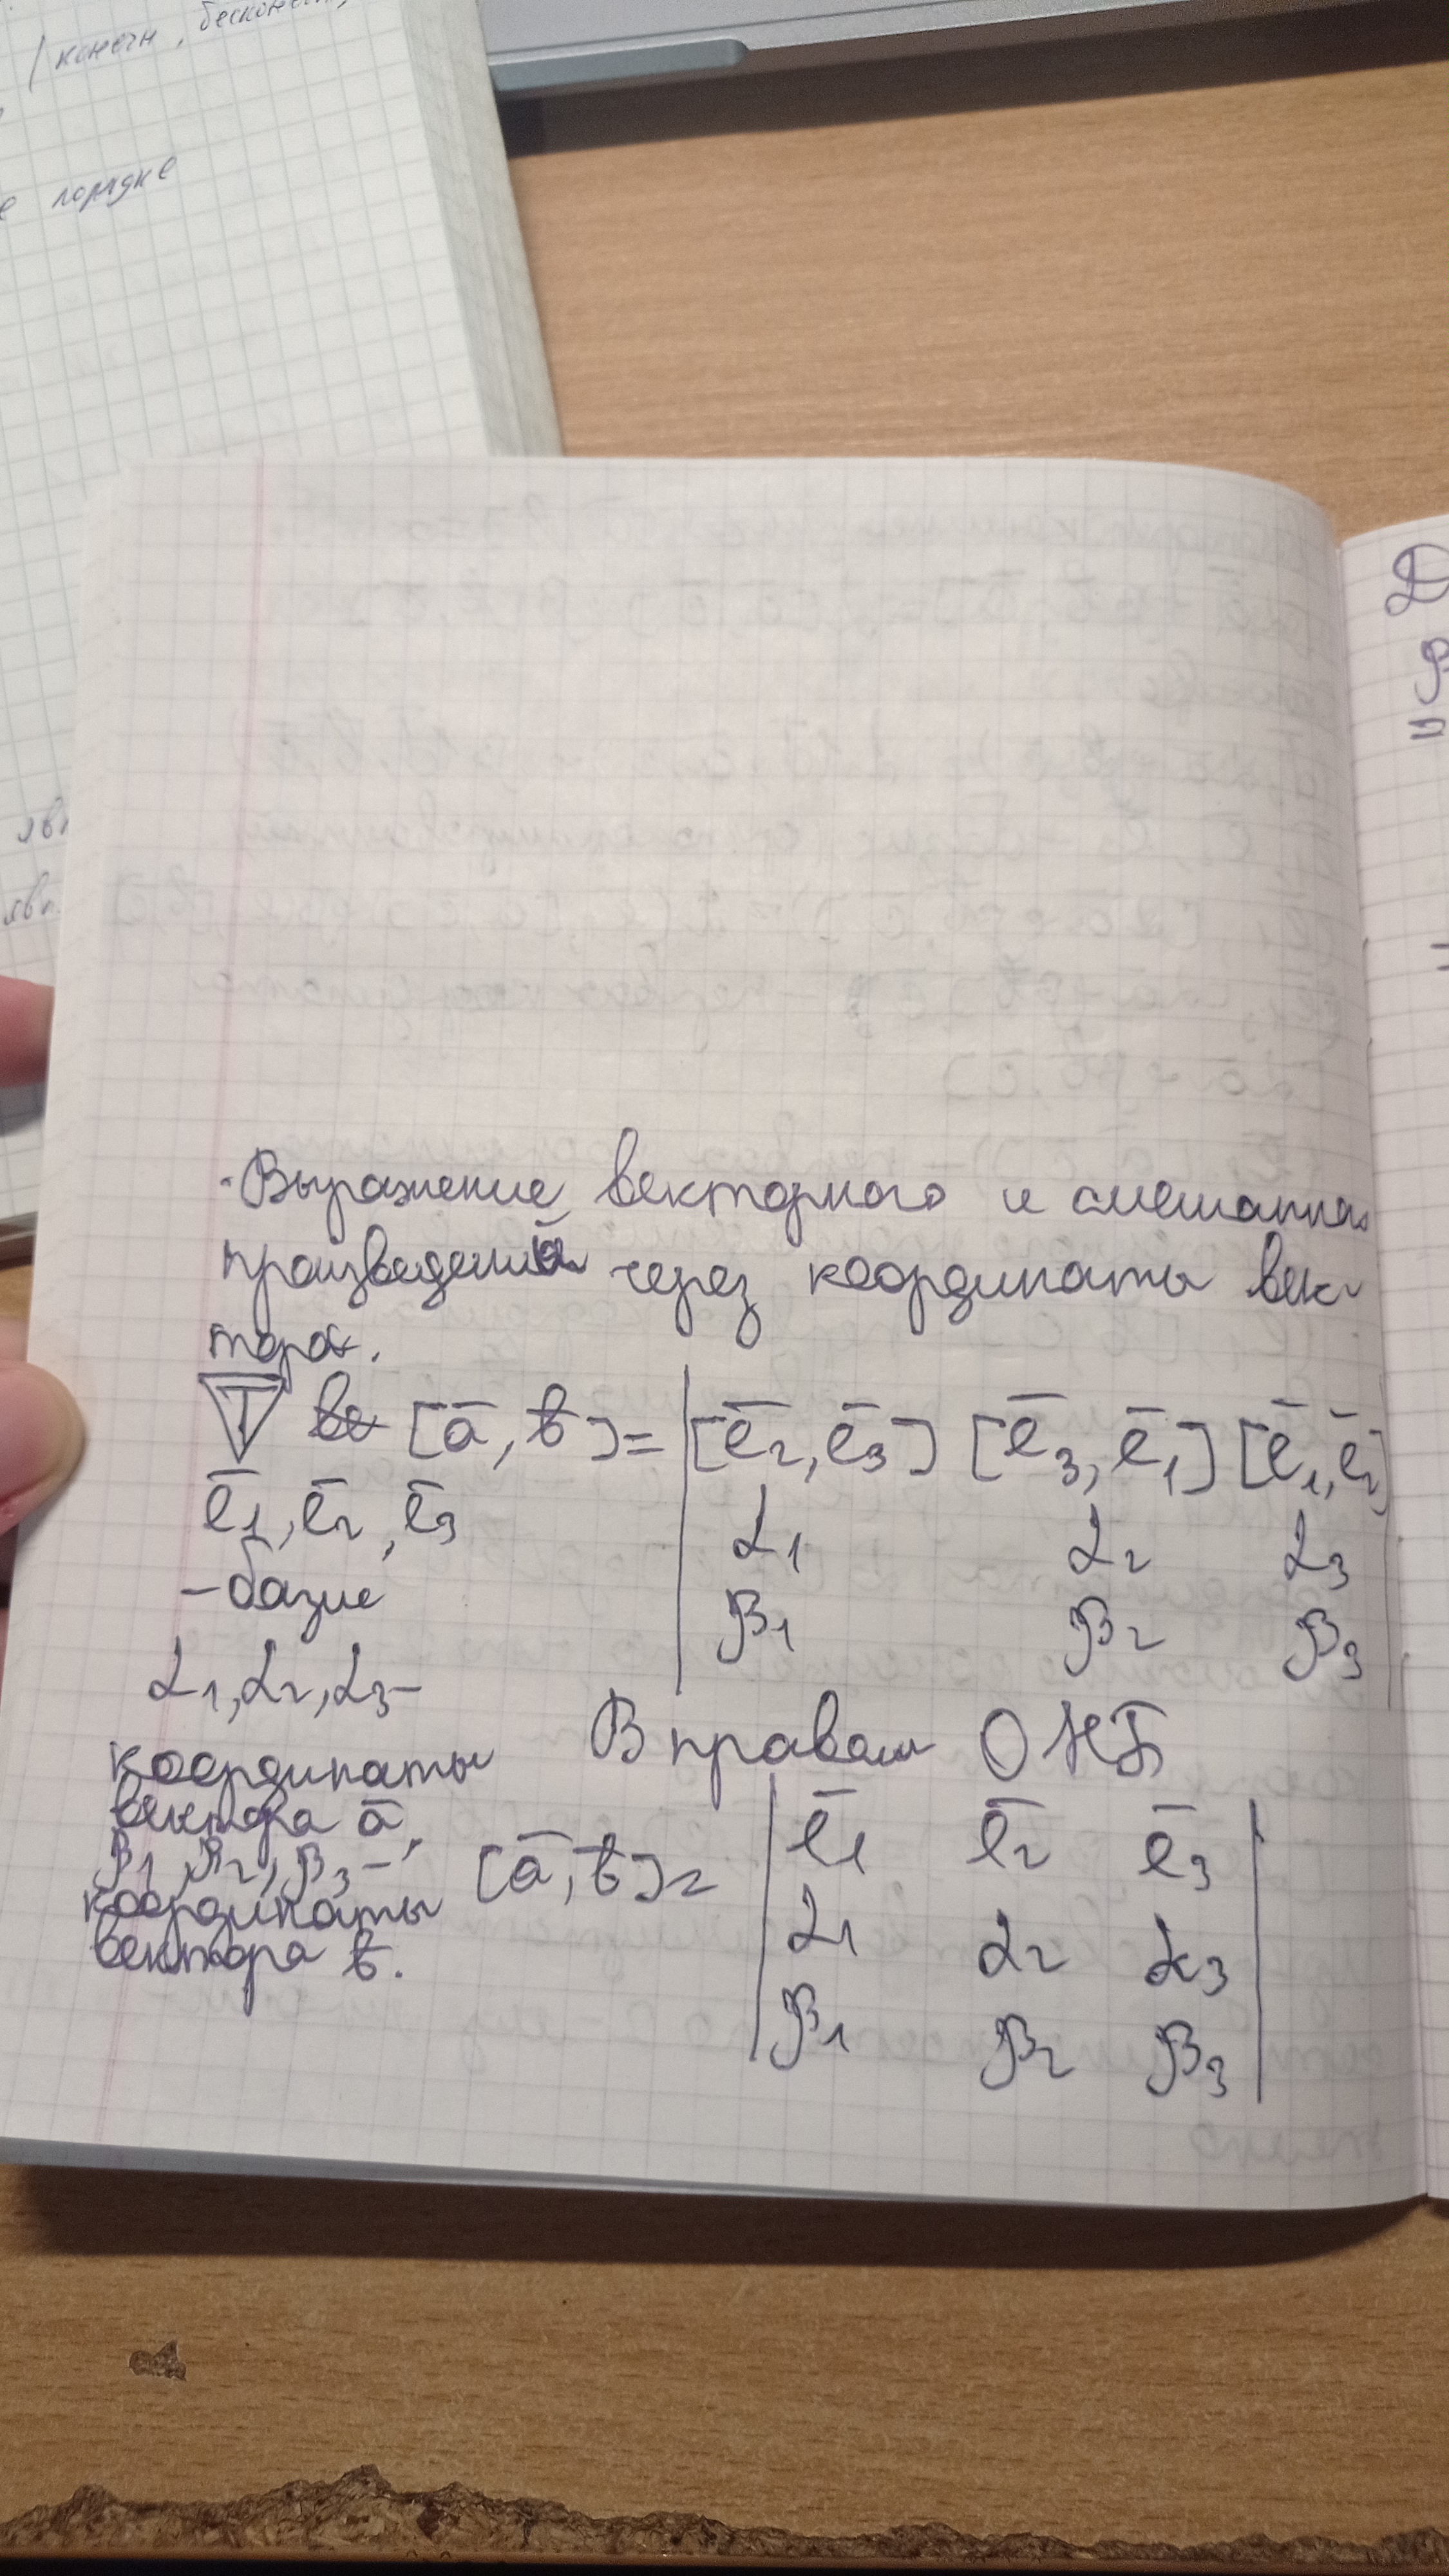 (конечн, бесконечн,
е порядке
явл
явл.
· Выражение векторного и смешанного
произведений через координаты век-
торов.
Т [ā, b̄] = | [ē₂, ē₃] [ē₃, ē₁] [ē₁, ē₂] |
ē₁, ē₂, ē₃
| α₁ α₂ α₃ |
- базис
| β₁ β₂ β₃ |
α₁, α₂, α₃ -
координаты
вектора ā,
β₁, β₂, β₃ -
координаты
вектора b̄.
В правом ОНБ
[ā, b̄] = | ē₁ ē₂ ē₃ |
| α₁ α₂ α₃ |
| β₁ β₂ β₃ |